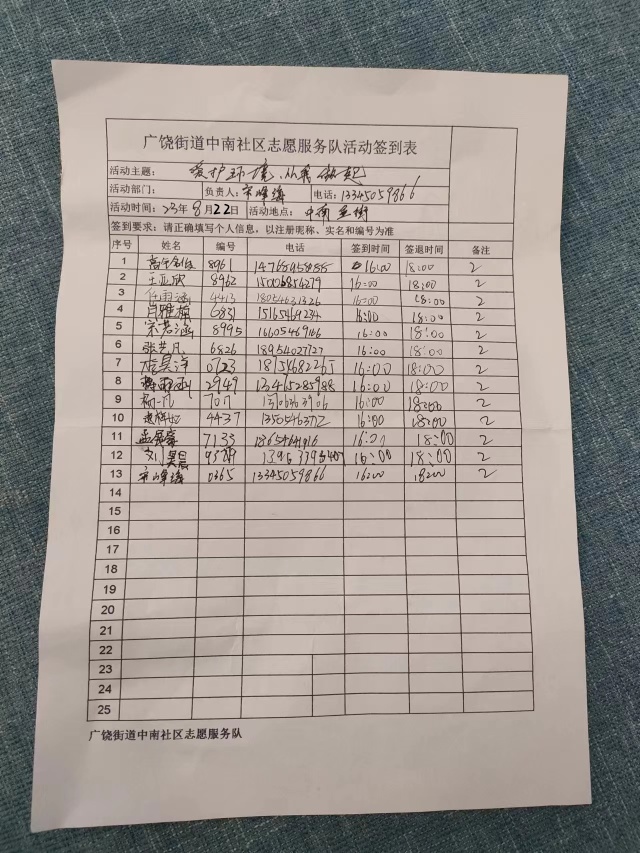 广饶街道中南社区志愿服务队活动签到表
活动主题: 爱护环境,从我做起
活动部门: 负责人: 宋峰海 电话: 13345059866
活动时间: 23年8月22日 活动地点: 中南
签到要求: 请正确填写个人信息,以注册昵称、实名和编号为准
序号 姓名 编号 电话 签到时间 签退时间 备注
1 8961 16:00 18:00 2
2 王亚欣 8962 15006856279 16:00 18:00 2
3 4413 18054631326 16:00 18:00 2
4 肖雅楠 6831 15165469234 16:00 18:00 2
5 宋若涵 8995 16605469166 16:00 18:00 2
6 张艺凡 6826 18954027727 16:00 18:00 2
7 0723 16:00 18:00 2
8 2949 13465285988 16:00 18:00 2
9 16:00 18:00 2
10 4437 13505463712 16:00 18:00 2
11 7133 18:00 2
12 刘昊晨 16:00 18:00 2
13 宋峰海 0365 13345059866 16:00 18:00 2
14
15
16
17
18
19
20
21
22
23
24
25
广饶街道中南社区志愿服务队